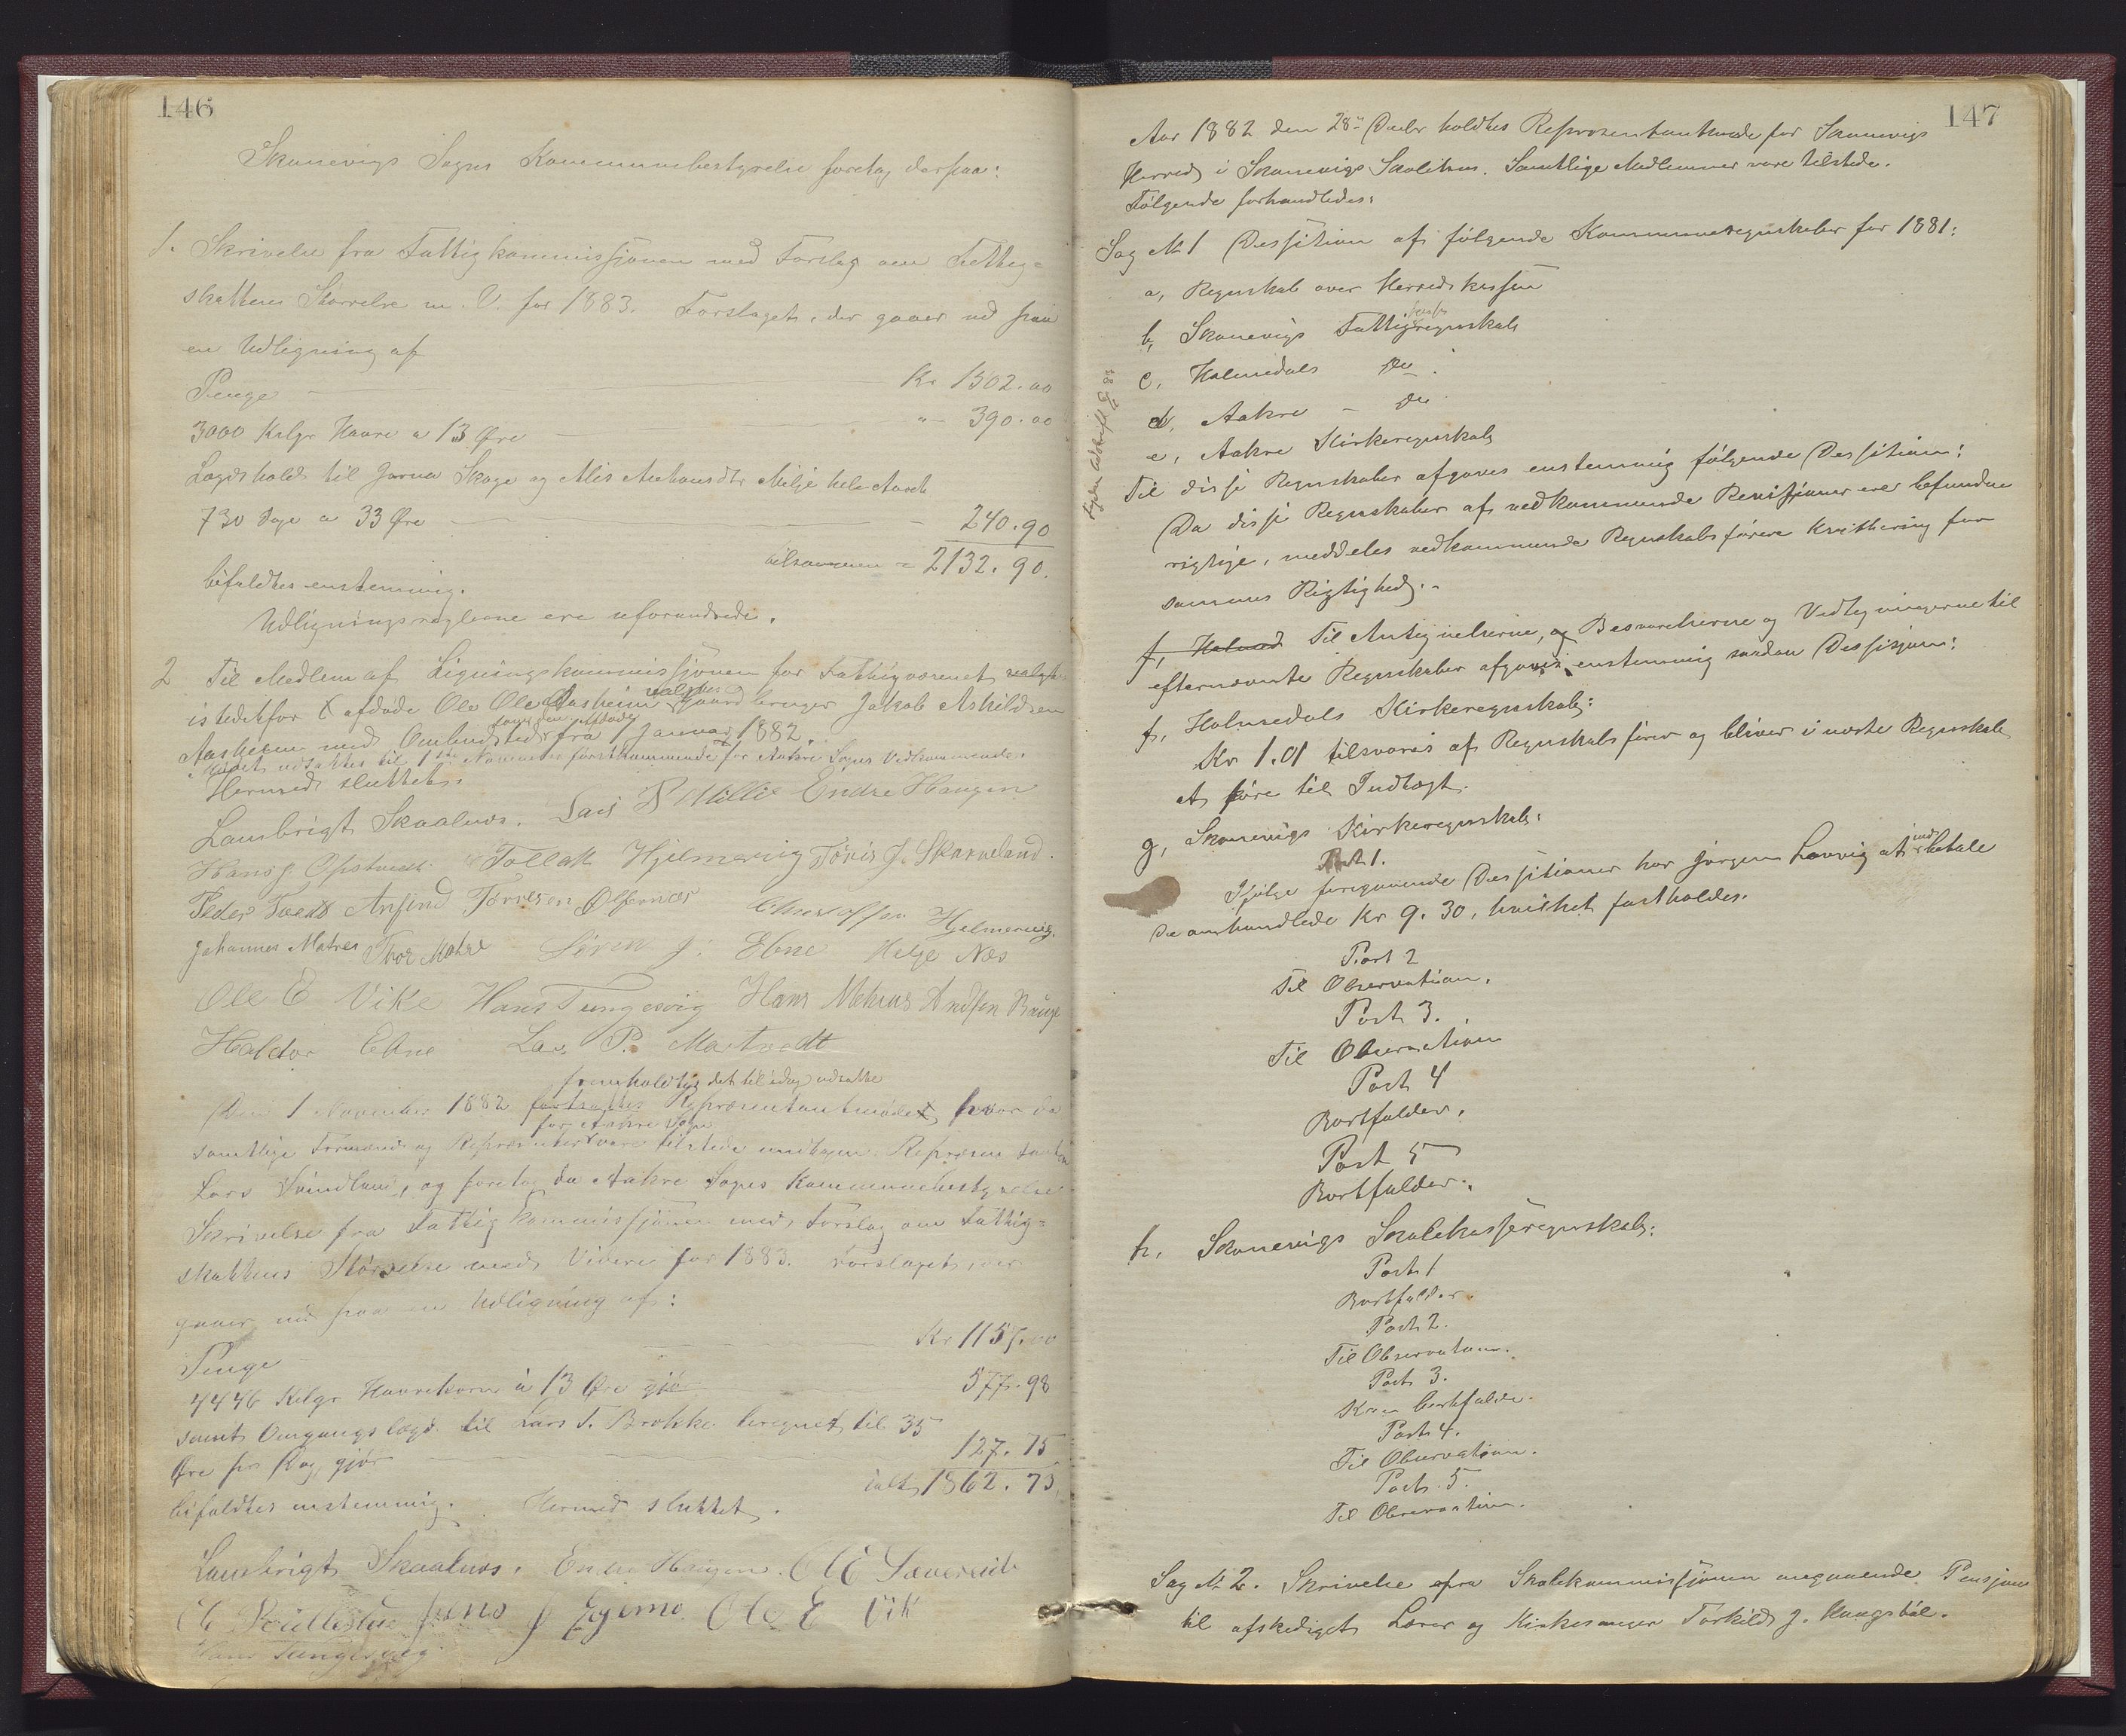 146
Skonevigs Sogns Kommunebestyrelse foretog derpaa:
1. Skrivelse fra Fattigkommissjonen med Forslag om Fattig-
skattens Størrelse m. V. for 1883. Forslaget, der gaaer ud paa
en Udligning af
Penge — Kr 1502.00
3000 Kilgr Havre a 13 Øre — "- 390.00
Lægdshold til Jorna Skage og Alis Milje hele Aaret
730 Dage a 33 Øre — 240.90
tilsammen = 2132.90.
bifaldtes enstemmig.
Udligningsreglerne ere uforandrede.
2 Til Medlem af Ligningskommissjonen for Fattigvæsenet valgtes
istedetfor afdøde Ole Olsen Aasheim Gaardbruger Jakob Askildsen
Aasheim med Ombudstid fra 1 Januar 1882.
Mødet udsattes til 1ste November førstkommende for Aakre Sogns Vedkommende.
Hermed sluttet.
Lambrigt Skaalnes. Lars P Millie Endre Haugen
Hans J. Opstveit Tollak Hjelmevig Tøris J. Skarveland.
Peder Tveit Anfind Tørresen Ølfernes Christoffer Hjelmevig.
Johannes Matre Thor Matre Søren J. Ebne Helge Næs
Ole E Vike Hans Tungesvig Hans Mehus Andfin Bauge
Haldor Ebne Lars P. Matvedt
fremholdtes det til idag udsatte
Den 1 November 1882 fortsattes Repræsentantmøde, hvor da
for Aakre Sogn
samtlige Formænd og Repræsentanter vare tilstede undtagen Repræsentant
Lars Svindland, og foretog da Aakre Sogns Kommunebestyrelse
Skrivelse fra Fattigkommissjonen med Forslag om Fattig-
skattens Størrelse med Videre for 1883. Forslaget, der
gaaer ud paa en Udligning af:
Penge — Kr 1157.00
4446 Kilgr Havrekorn à 13 Øre gjør — 577.98
samt Omgangslægd til Lars T. Brokke beregnet til 35
Øre pr Dag, gjør — 127.75
ialt 1862.73.
bifaldtes enstemmig. Hermed sluttet.
Lambrigt Skaalnes. Endre Haugen. Ole Sævereide
Jens J Egemo Ole E Vik
Hans Tungesvig
147
Aar 1882 den 28de Decbr holdtes Repræsentantmøde for Skonevigs
Herred i Skonevigs Skolehus. Samtlige Medlemmer vare tilstede.
Følgende forhandledes:
Sag № 1 Decision af følgende Kommuneregnskaber for 1881:
a, Regnskab over Herredskassen
b, Skonevigs Fattigregnskab
c, Holmedals Do
d, Aakre – Do
e, Aakre Kirkeregnskab
Til disse Regnskaber afgaves enstemmig følgende Decision:
Da disse Regnskaber af vedkommende Revisjoner ere befundne
rigtige, meddeles vedkommende Regnskabsførere Kvittering for
sammes Rigtighed.-
f, Holmed Til Antegnelserne, og Besvarelserne og Vedtegningerne til
efternævnte Regnskaber afgaves enstemmig saadan Decisjon:
f, Holmedals Kirkeregnskab:
Kr 1.01 tilsvares af Regnskabsfører og bliver i næste Regnskab
at føre til Indtægt.
g, Skonevigs Kirkeregnskab:
Post 1.
Ifølge foregaaende Decisioner har Jørgen Lavvig at indbetale
de omhandlede Kr 9.30, hvilket fastholdes.
Post 2
Til Observation.
Post 3.
Til Observation
Post 4
Bortfalder.
Post 5
Bortfalder.
h, Skonevigs Skolekasseregnskab:
Post 1
Bortfalder.
Post 2.
Til Observation.
Post 3.
Kan bortfalde.
Post 4.
Til Observation.
Post 5.
Til Observation.
Sag № 2. Skrivelse fra Skolekommissjonen angaaende Pensjon
til afskediget Lærer og Kirkesanger Torkild J. Haugsbøe.